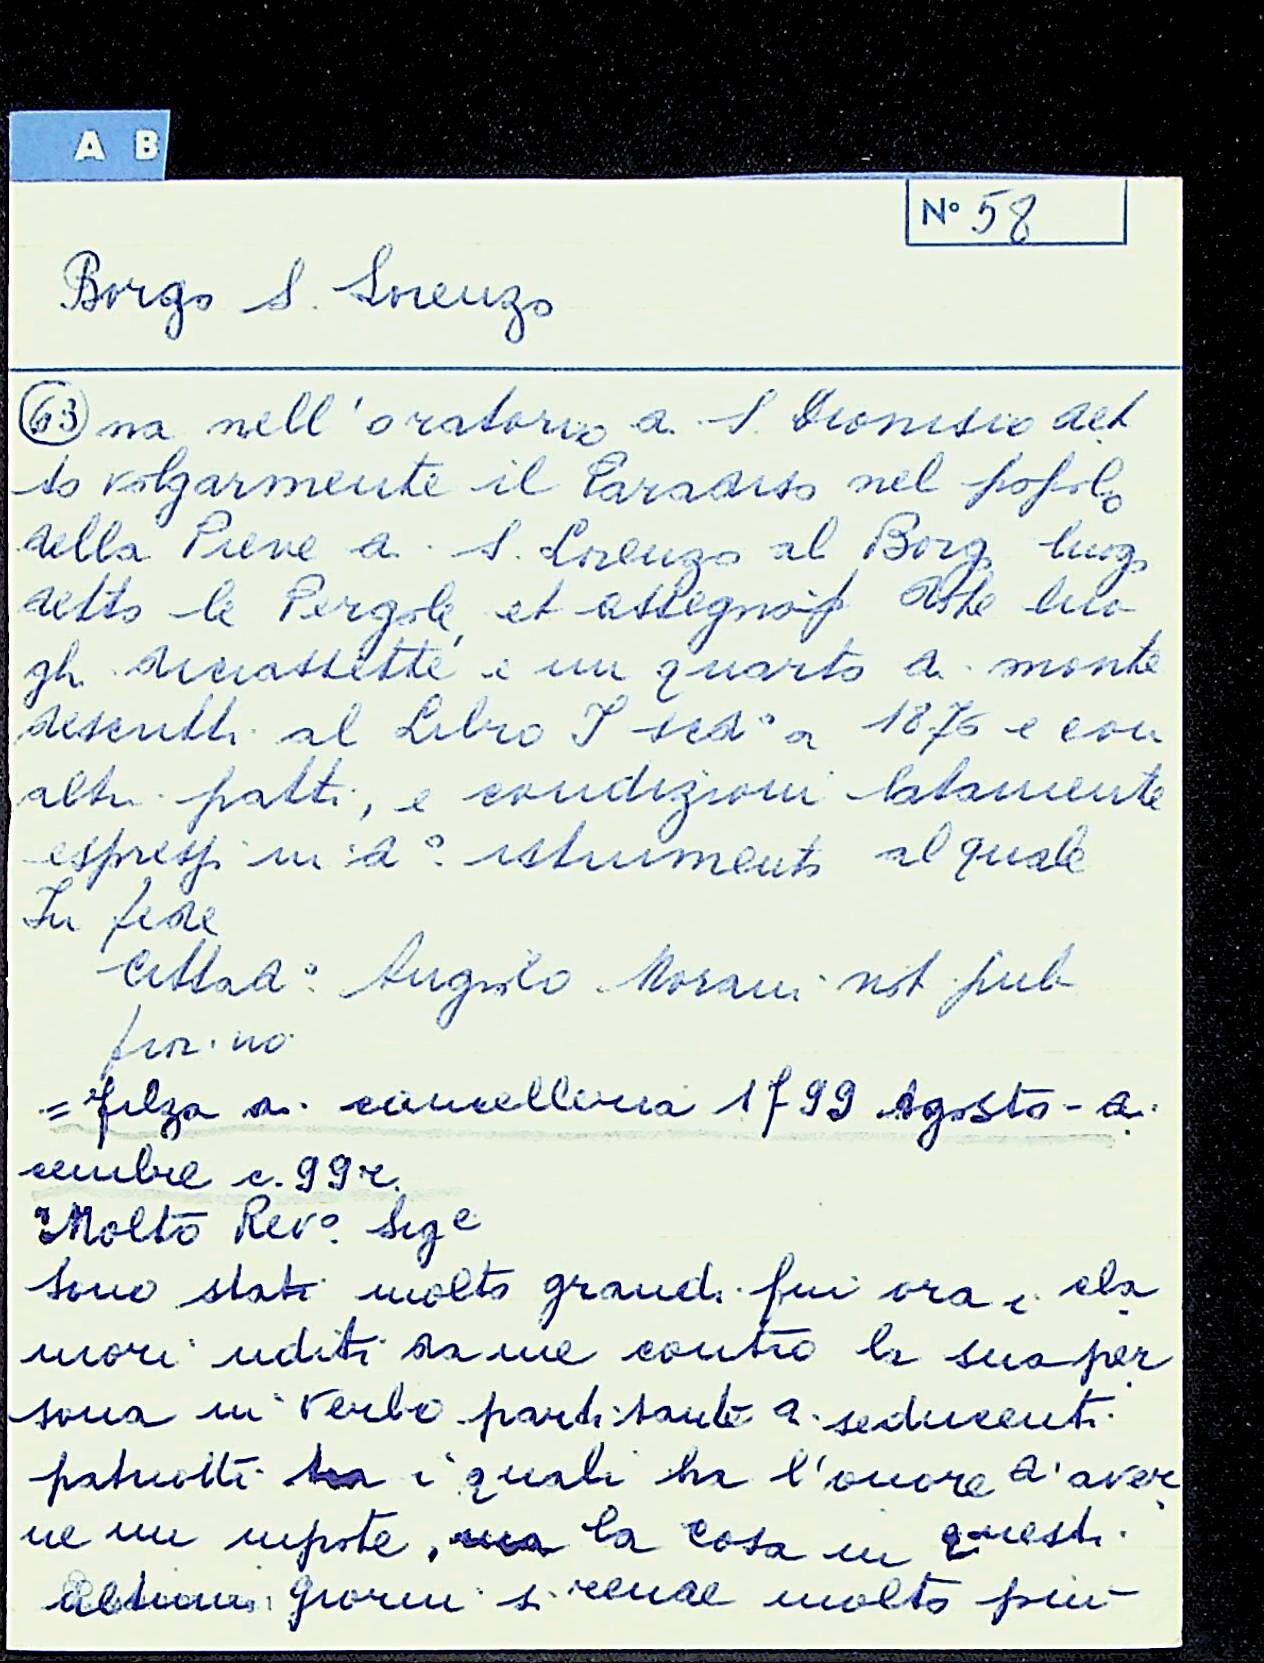 A B
N° 58
Borgo S. Lorenzo
63 na nell'oratorio d. S. Dionisio det
to volgarmente il Paradiso nel popolo
della Pieve d. S. Lorenzo al Borgo luogo
detto le Pergole, et assegnò p dote luo
ghi diciassette e un quarto d. monte
descritti al Libro I sed° a 1876 e con
altri patti, e condizioni latamente
espressi in d° istrumento al quale
In fede
Cittad° Angiolo Morani not pub
fior.no
= filza d. cancelleria 1799 Agosto - d.
cembre c. 99r.
Molto Rev° Sig e
Sono stati molto grandi fin ora i cla
mori uditi da me contro la sua per
sona in verbo partisante d. seducenti
patriotti i quali ha l'onore d'aver
ne un nipote, la cosa in questi
ultimi giorni si rende molto più